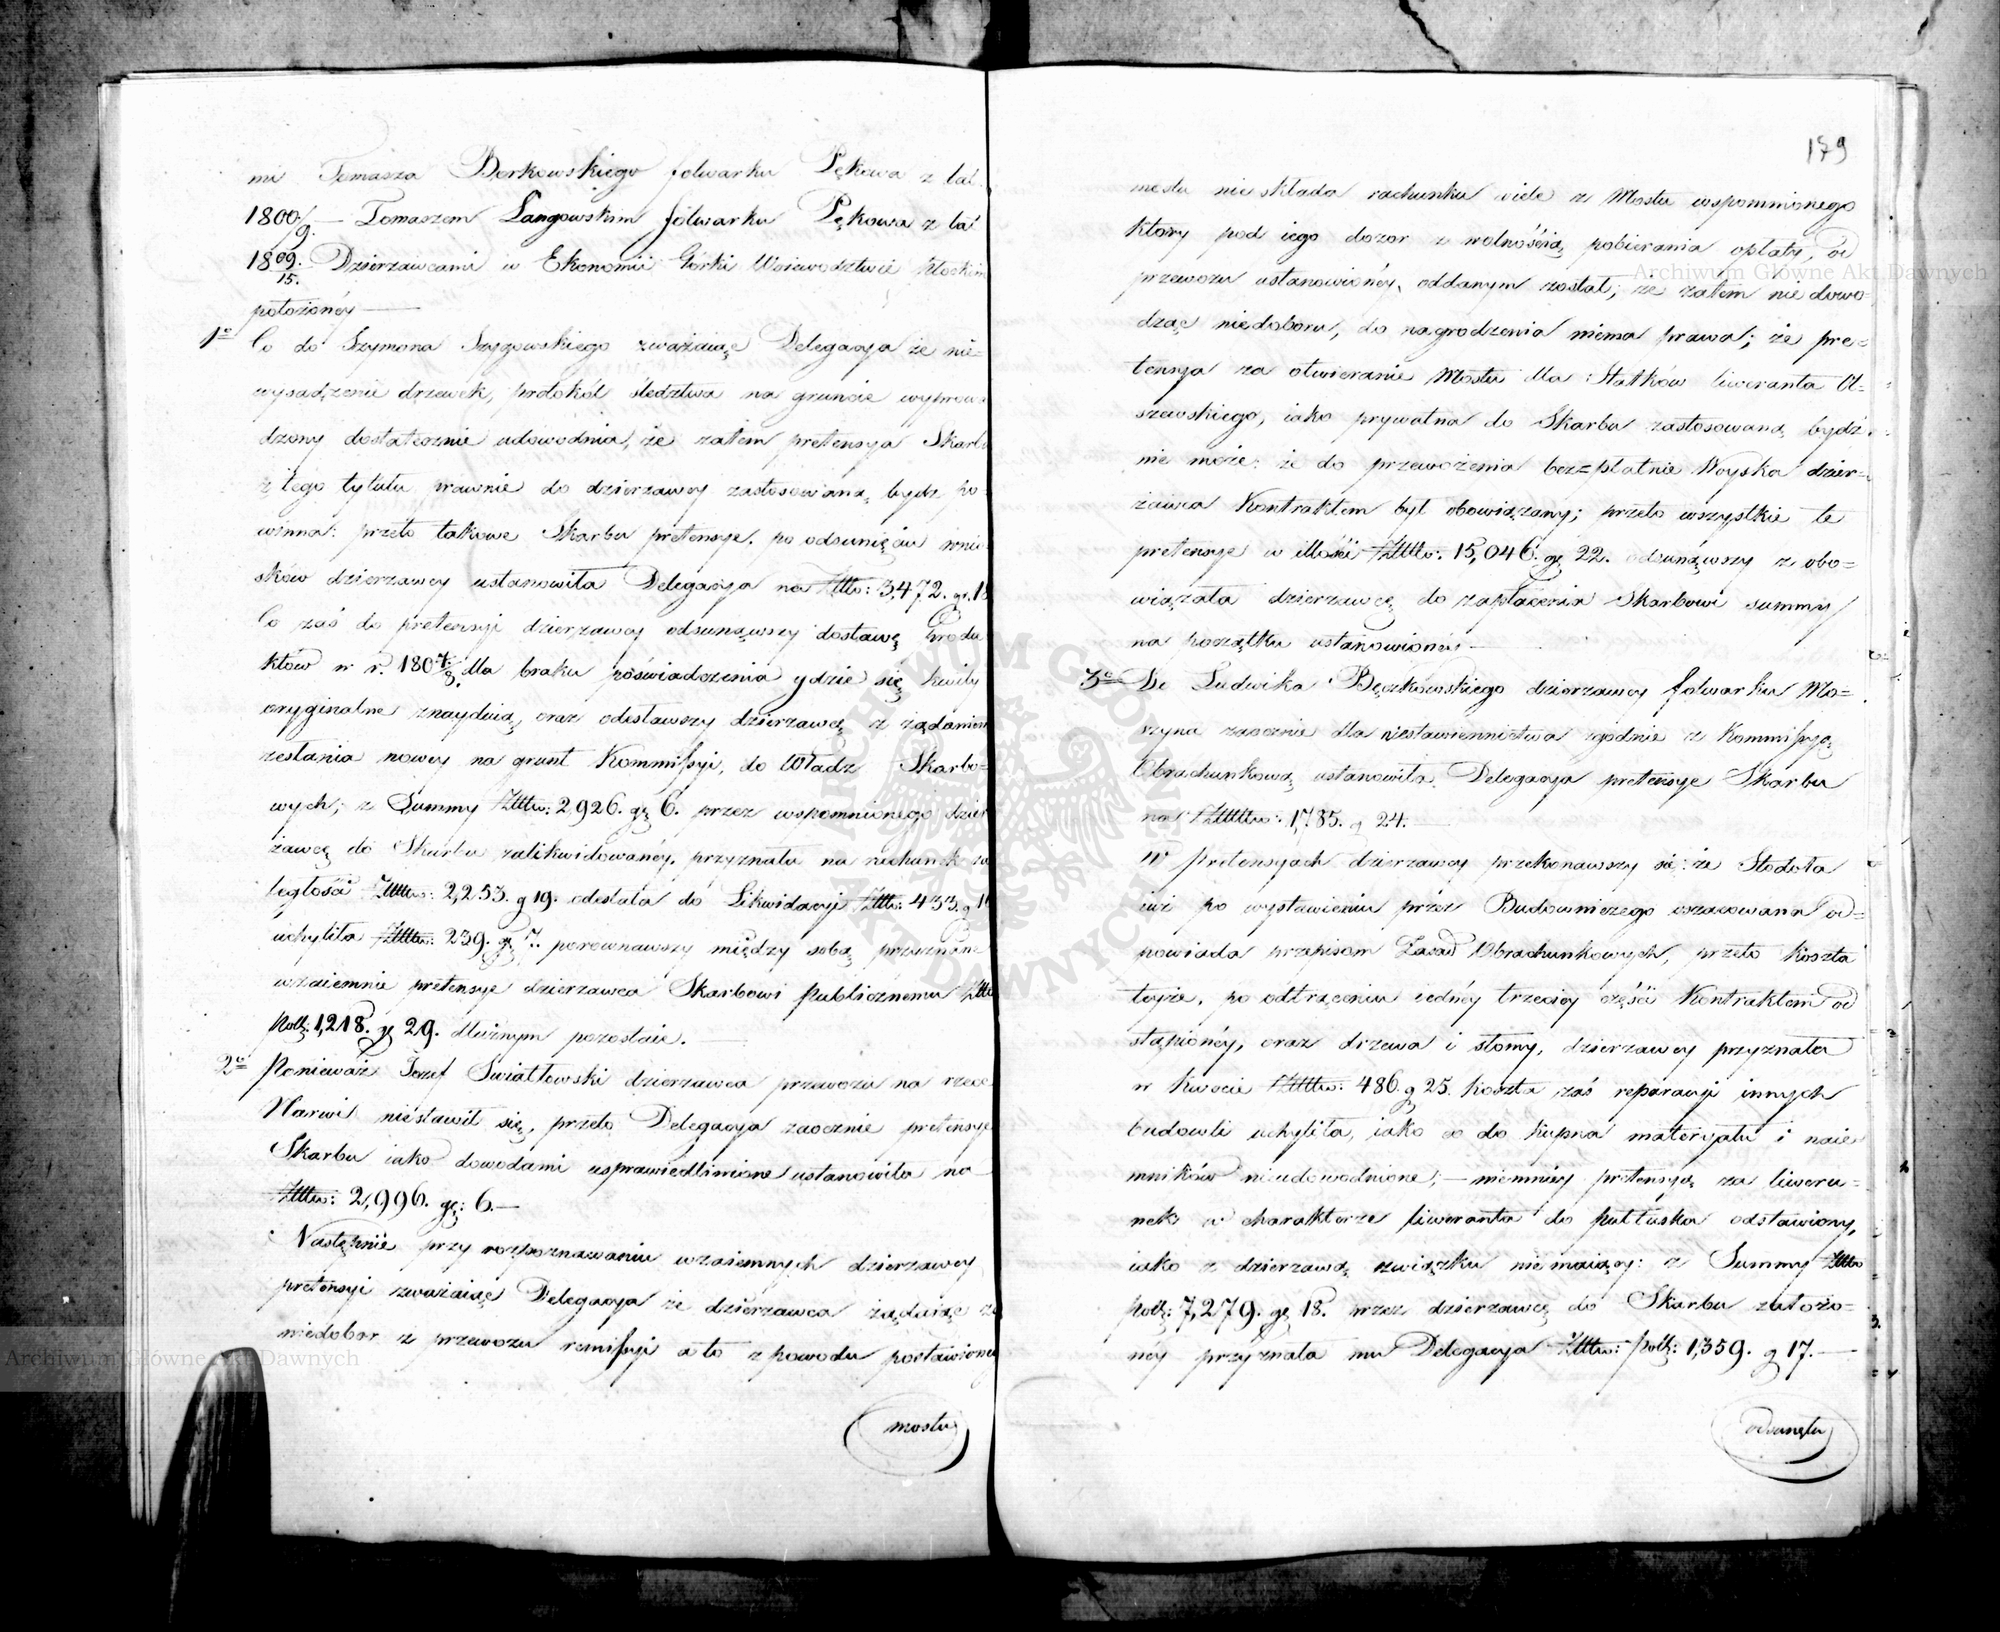 mi Tomasza Borkowskiego folwarku Pękowa z lat
1800/9. — Tomaszem Langowskim folwarku Pękowa z lat
1809/15. Dzierżawcami w Ekonomii Górki Woiewodztwie Płockim
położoney —
1o Co do Szymona zważaiąc Delegacya że nie=
wysadzenie drzewek, protokół śledztwa na gruncie wyprow
dzony dostatecznie udowodnia, że zatem pretensya Skarbu
z tego tytułu prawnie do dzierżawcy zastosowaną bydź po=
winna: przeto takowe Skarbu pretensye po odsunięciu wnio
sków dzierżawcy ustanowiła Delegacya na Złłtw: 3,472. gr. 18
Co zaś do pretensyi dzierżawcy odsunąwszy dostawę Produ
któw w r. 1807/8. dla braku poświadczenia gdzie się kwity
oryginalne znayduią, oraz odesławszy dzierżawcę z żądaniem
zesłania nowey na grunt Kommissyi, do Władz Skarbo=
wych; z Summy Złłtw: 2,926. gr 6. przez wspomnionego dzier
żawcę do Skarbu zalikwidowaney, przyznała na rachunek za
ległości Złłtw: 2,253. g 19. odesłała do Likwidacyi Złłtw: 433. g 10
uchyliła Złłtw: 239. gr 7. porównawszy między sobą przyznane
wzaiemnie pretensye dzierżawca Skarbowi Publicznemu Złłt
Polł: 1,218. gr 29. dłużnym pozostaie. —
2o Ponieważ Jozef Swiatłowski dzierżawca przewozu na rzece
Narwi niestawił się, przeto Delegacya zaocznie pretensye
Skarbu iako dowodami usprawiedliwione ustanowiła na
Złłtw: 2,996. gr: 6. —
Następnie przy rozpoznawaniu wzaiemnych dzierżawcy
pretensyi zważaiąc Delegacya że dzierżawca żądaiąc za
niedobor z przewozu remissyi a to z powodu postawioney
mostu
179
mostu nieskłada rachunku wiele z Mostu wspomnionego
ktory pod iego dozor z wolnością pobierania opłaty, od
przewozu ustanowioney, oddanym został; że zatem niedowo=
dząc niedoboru, do nagrodzenia niema prawa; że pre=
tensya za otwieranie Mostu dla Statków liweranta Ol=
szewskiego, iako prywatna do Skarbu zastosowaną bydź
nie może: że do przewożenia bezpłatnie Woyska dzier=
żawca Kontraktem był obowiązany; przeto wszystkie te
pretensye w illości Złłtw: 15,046. gr 22. odsunąwszy z obo=
wiązała dzierżawcę do zapłacenia Skarbowi summy
na początku ustanowioney —
3o Do Ludwika Bęczkowskiego dzierżawcy folwarku Mo=
szyna zaocznie dla niestawiennictwa zgodnie z Kommissyą
Obrachunkową ustanowiła Delegacya pretensye Skarbu
na Złłtw: 1,785. g 24. —
W pretensyach dzierżawcy przekonawszy się: że Stodoła
iuż po wystawieniu przez Budowniczego oszacowana od=
powiada przepisom Zasad Obrachunkowych, przeto koszta
teyże, po odtrąceniu iedney trzeciey części Kontraktem od
stąpioney, oraz drzewa i słomy, dzierżawcy przyznała
w kwocie Złłtw: 486. g 25. koszta zaś reparacyi innych
budowli uchyliła, iako co do kupna materyału i naie
mników nieudowodnione; — niemniey pretensyą za liweru=
nek w charakterze liweranta do Pułtuska odstawiony,
iako z dzierżawą związku niemaiący: z Summy Złłtw
Polł: 7,279. gr 18. przez dzierżawcę do Skarbu założo=
ney przyznała mu Delegacya Złłtw: Polł: 1,359. g 17. —
odsunęła
Archiwum Główne Akt Dawnych
Archiwum Główne Akt Dawnych
ARCHIWUM GŁÓWNE AKT DAWNYCH